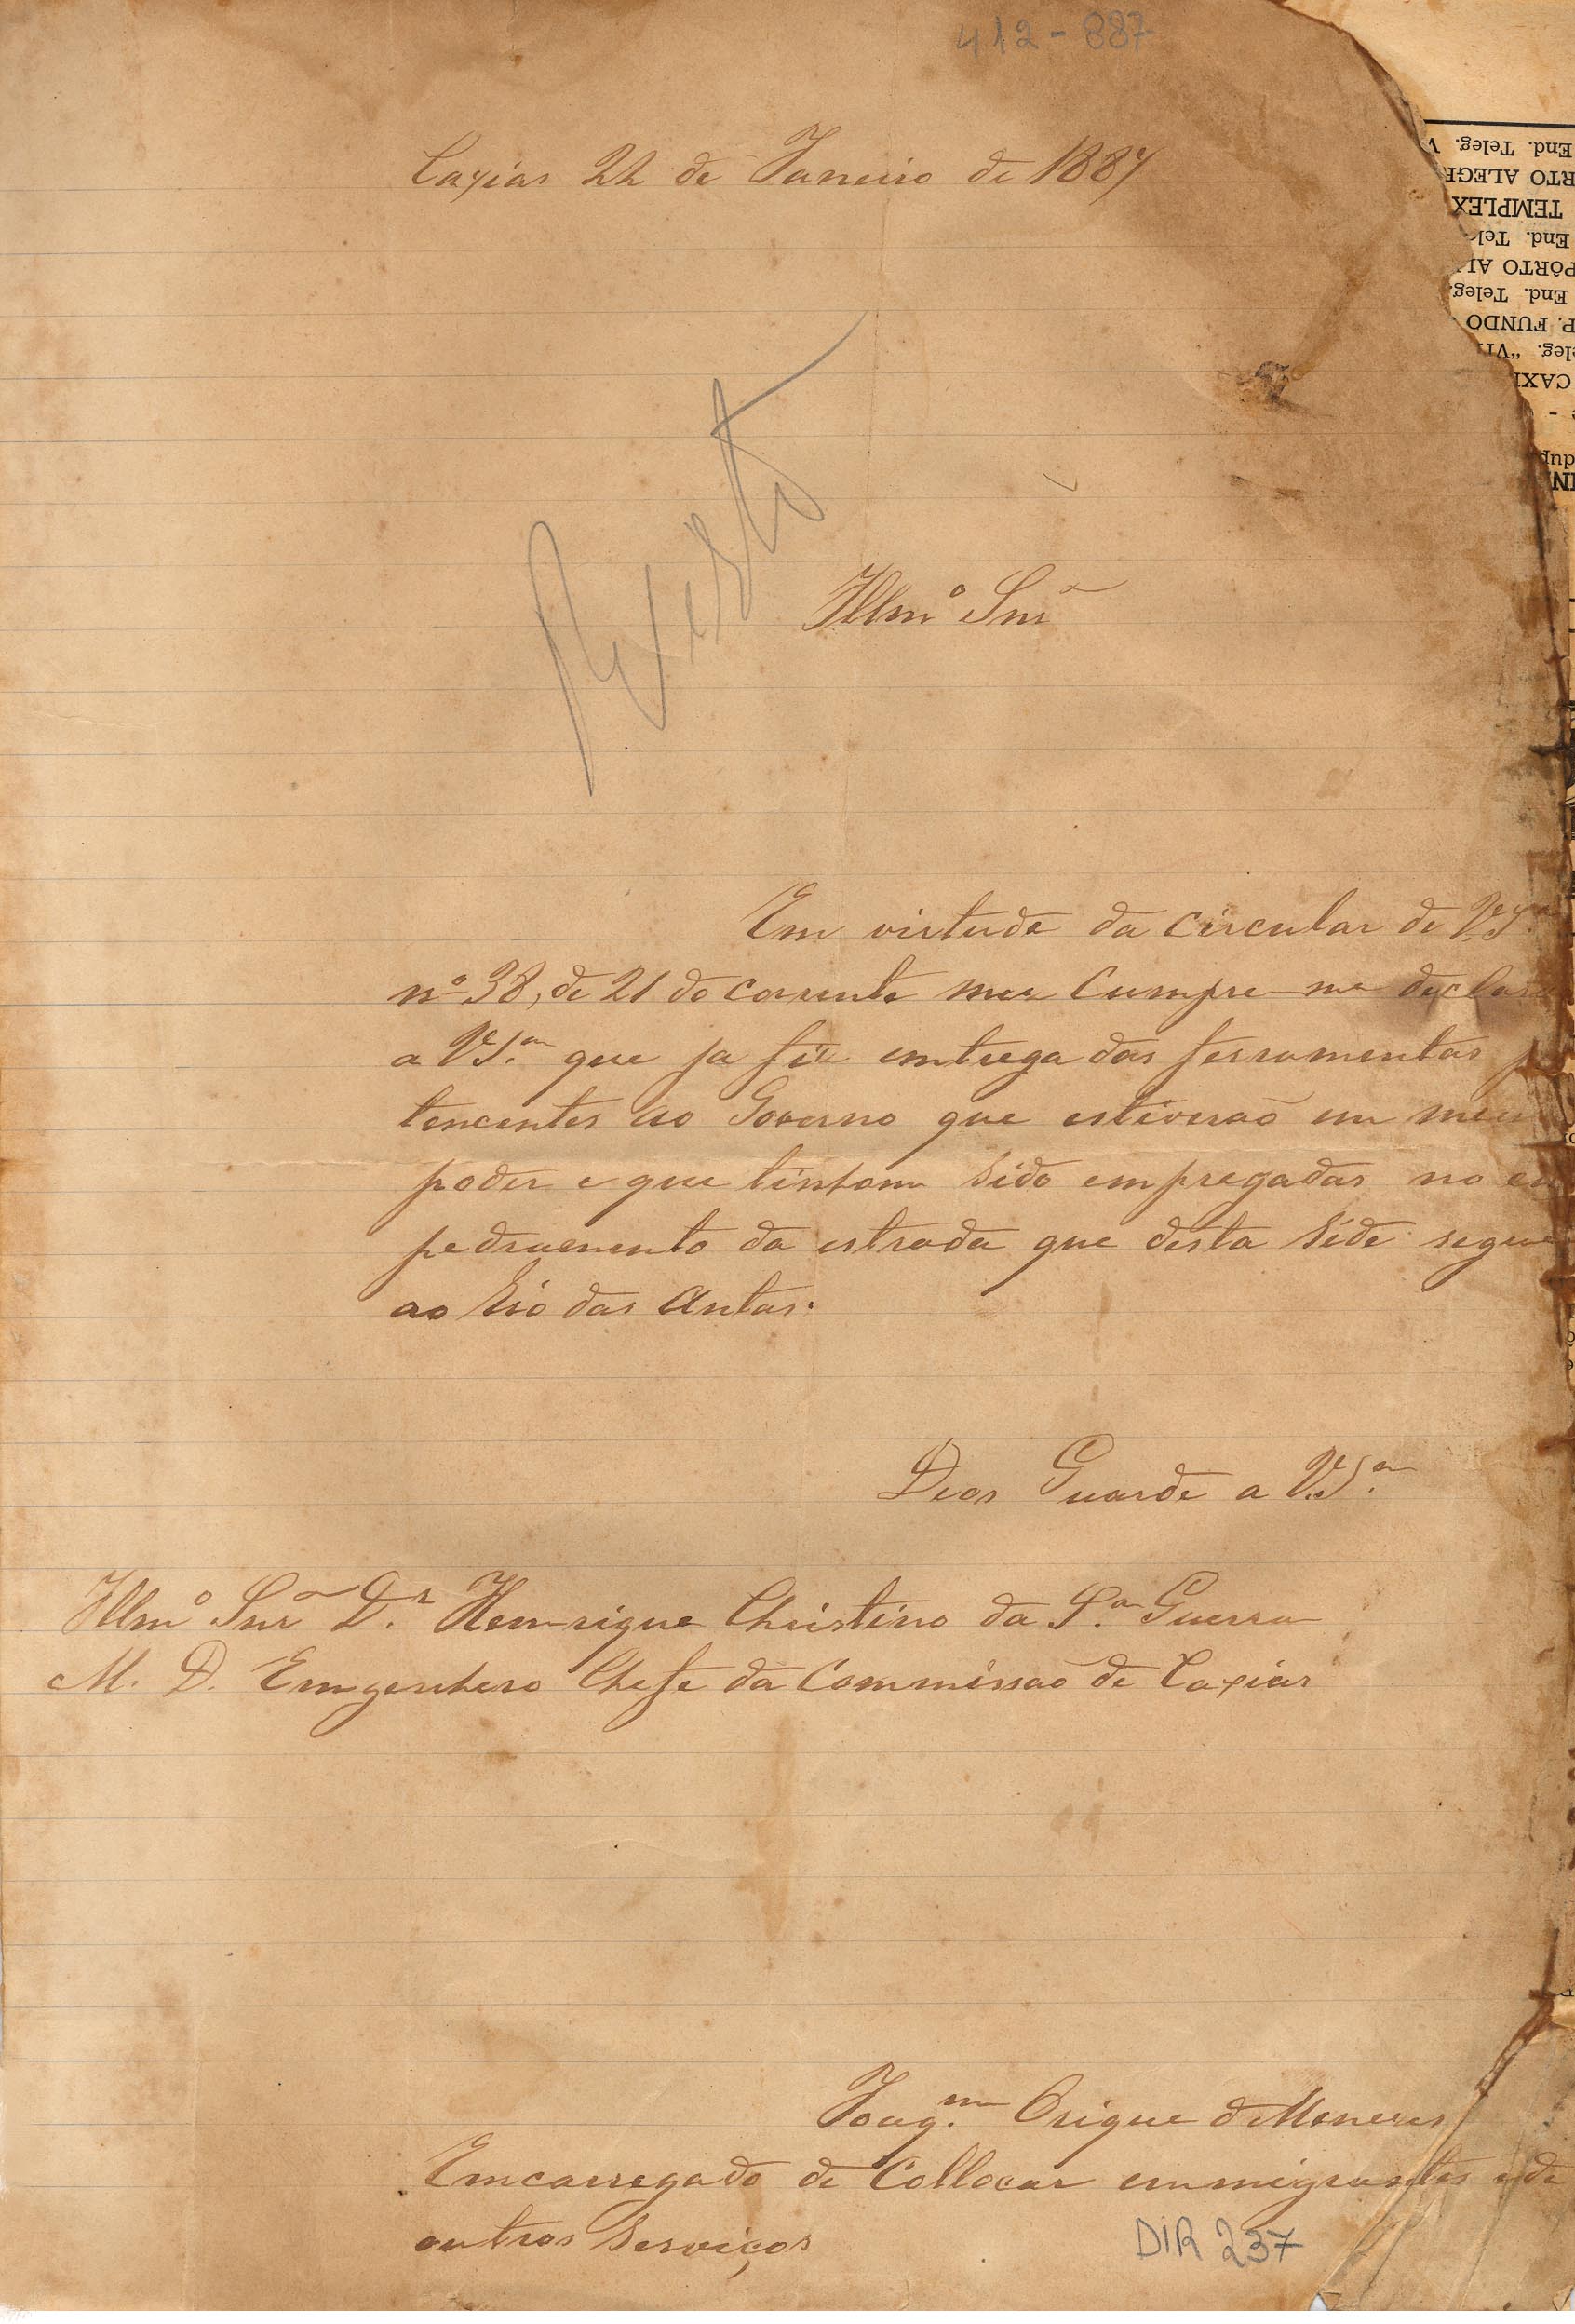 412-887
Caxias 22 de Janeiro de 1887
End. Teleg. V
RTO ALEGR
TEMPLEX
End. Tel
PÔRTO AL
End. Teleg.
P. FUNDO
eleg. "VI
CAXI
Illmº Snr
Em virtude da circular de V.Sª
nº 38, de 21 do corrente mez cumpre-me declar
a VS.ª que ja fiz emtrega das ferramentas p
tencentes ao Governo que estiverão em meu
poder e que tinham sido empregadas no em
pedramento da estrada que desta séde segue
ao Rio das Antas.
Deos Guarde a V.S.ª
Illmº Snr D.r Hemrique Christino da S.ª Guerra
M. D. Emgenhero Chefe da Commissão de Caxias
Joaq.m Orique de Menezes
Emcarregado de Collocar emmigrantes e de
outros serviços
DIR 237